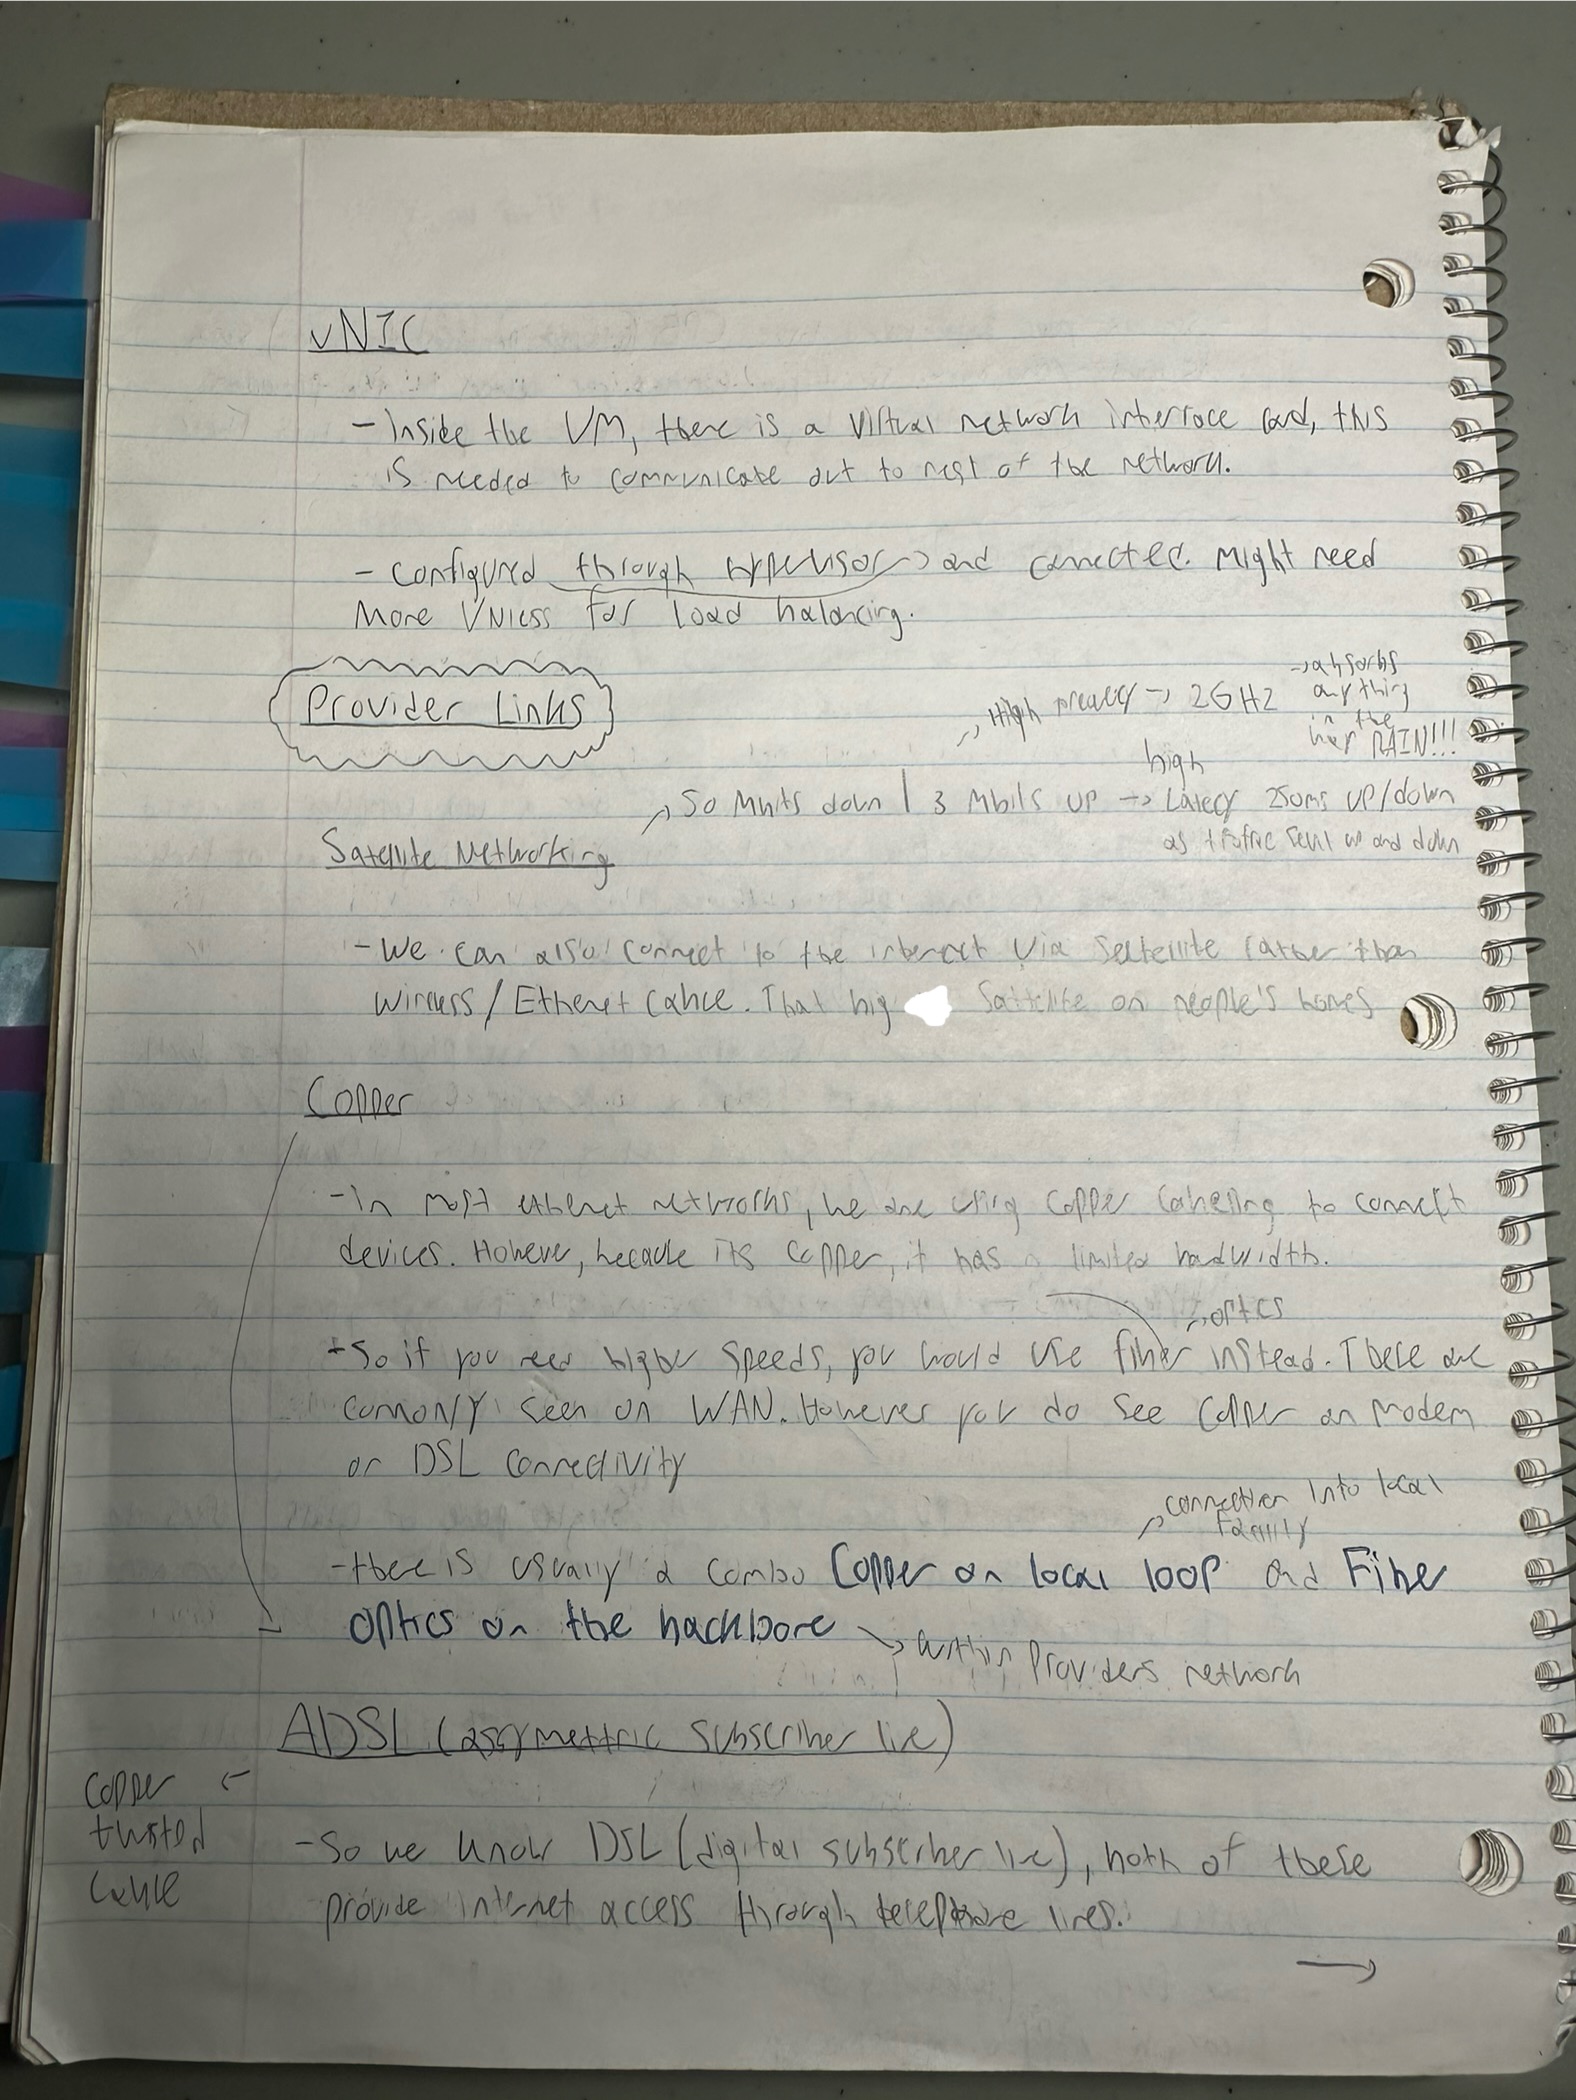 vNIC
- Inside the VM, there is a virtual network interface card, this
is needed to communicate out to rest of the network.
- Configured through hypervisor and connected. Might need
More VNICss for load balancing.
Provider Links
→ High → 2GHz
→ absorbs
anything
in the
RAIN!!!
Satellite Networking
→ 50 Mbits down | 3 Mbits up → high Latecy 250ms up/down
as traffic sent up and down
- We can also connect to the internet via Satellite rather than
Wireless / Ethernet Cable. That big Sattelite on people's homes
Copper
- In most ethernet networks, we are using copper cabeling to connect
devices. However, because its copper, it has a limited bandwidth.
→ optics
- So if you need higher speeds, you would use fiber instead. These are
commonly seen on WAN. However you do see copper on modem
or DSL connectivity
→ connection into local
facility
- there is usually a combo Copper on local loop and Fiber
optics on the backbone → Within Providers network
ADSL (assymettric subscriber line)
Copper ←
twisted
cable
- So we know DSL (digital subscriber line), both of these
provide internet access through telephone lines.
→